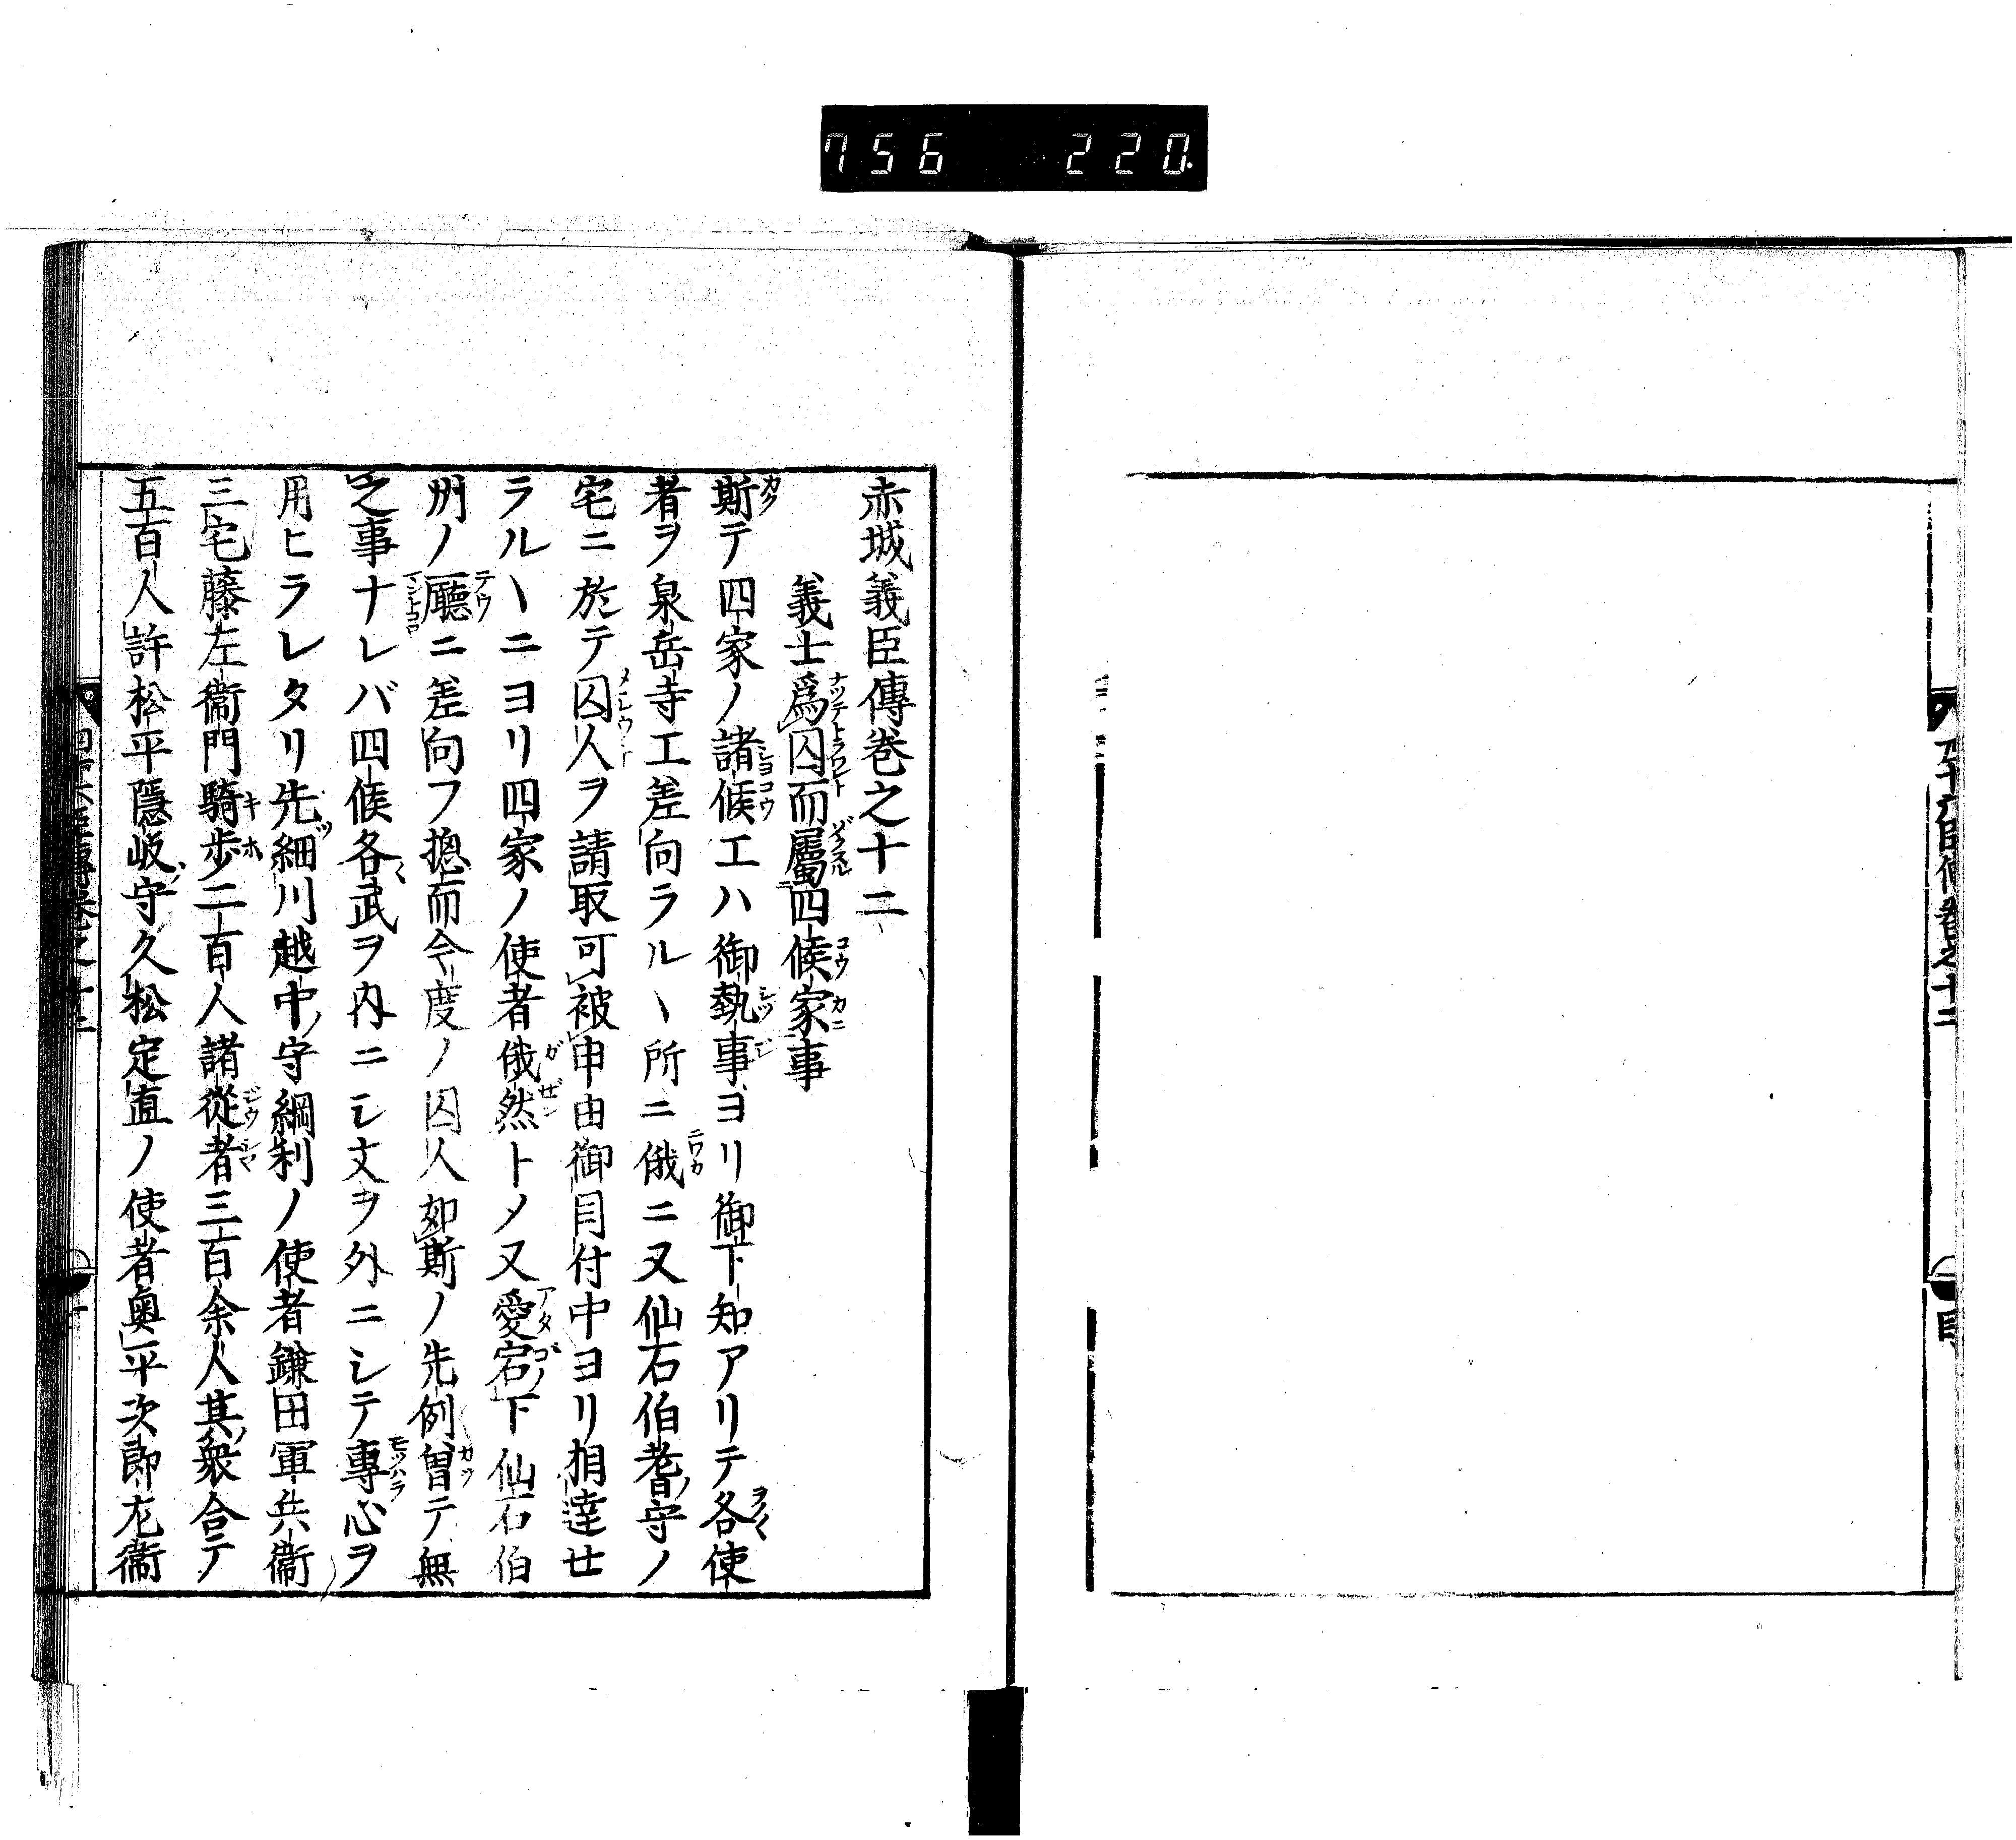 756 220
赤城義臣傳巻之十二
義士爲囚而屬四候家事
斯テ四家ノ諸候エハ御執事ヨリ御下知アリテ各使
者ヲ泉岳寺エ差向ラルヽ所ニ俄ニ又仙石伯耆守ノ
宅ニ於テ囚人ヲ請取可被申由御目付中ヨリ相達せ
ラルヽニヨリ四家ノ使者俄然トメ又愛宕下仙石伯
州ノ廳ニ差向フ摠而今度ノ囚人如斯ノ先例曽テ無
之事ナレバ四候各武ヲ内ニシ文ヲ外ニシテ專心ヲ
用ヒラレタリ先細川越中守綱利ノ使者鎌田軍兵衞
三宅藤左衞門騎歩二百人諸從者三百余人其衆合テ
五百人許松平隱岐守久松定直ノ使者奥平次郎左衞